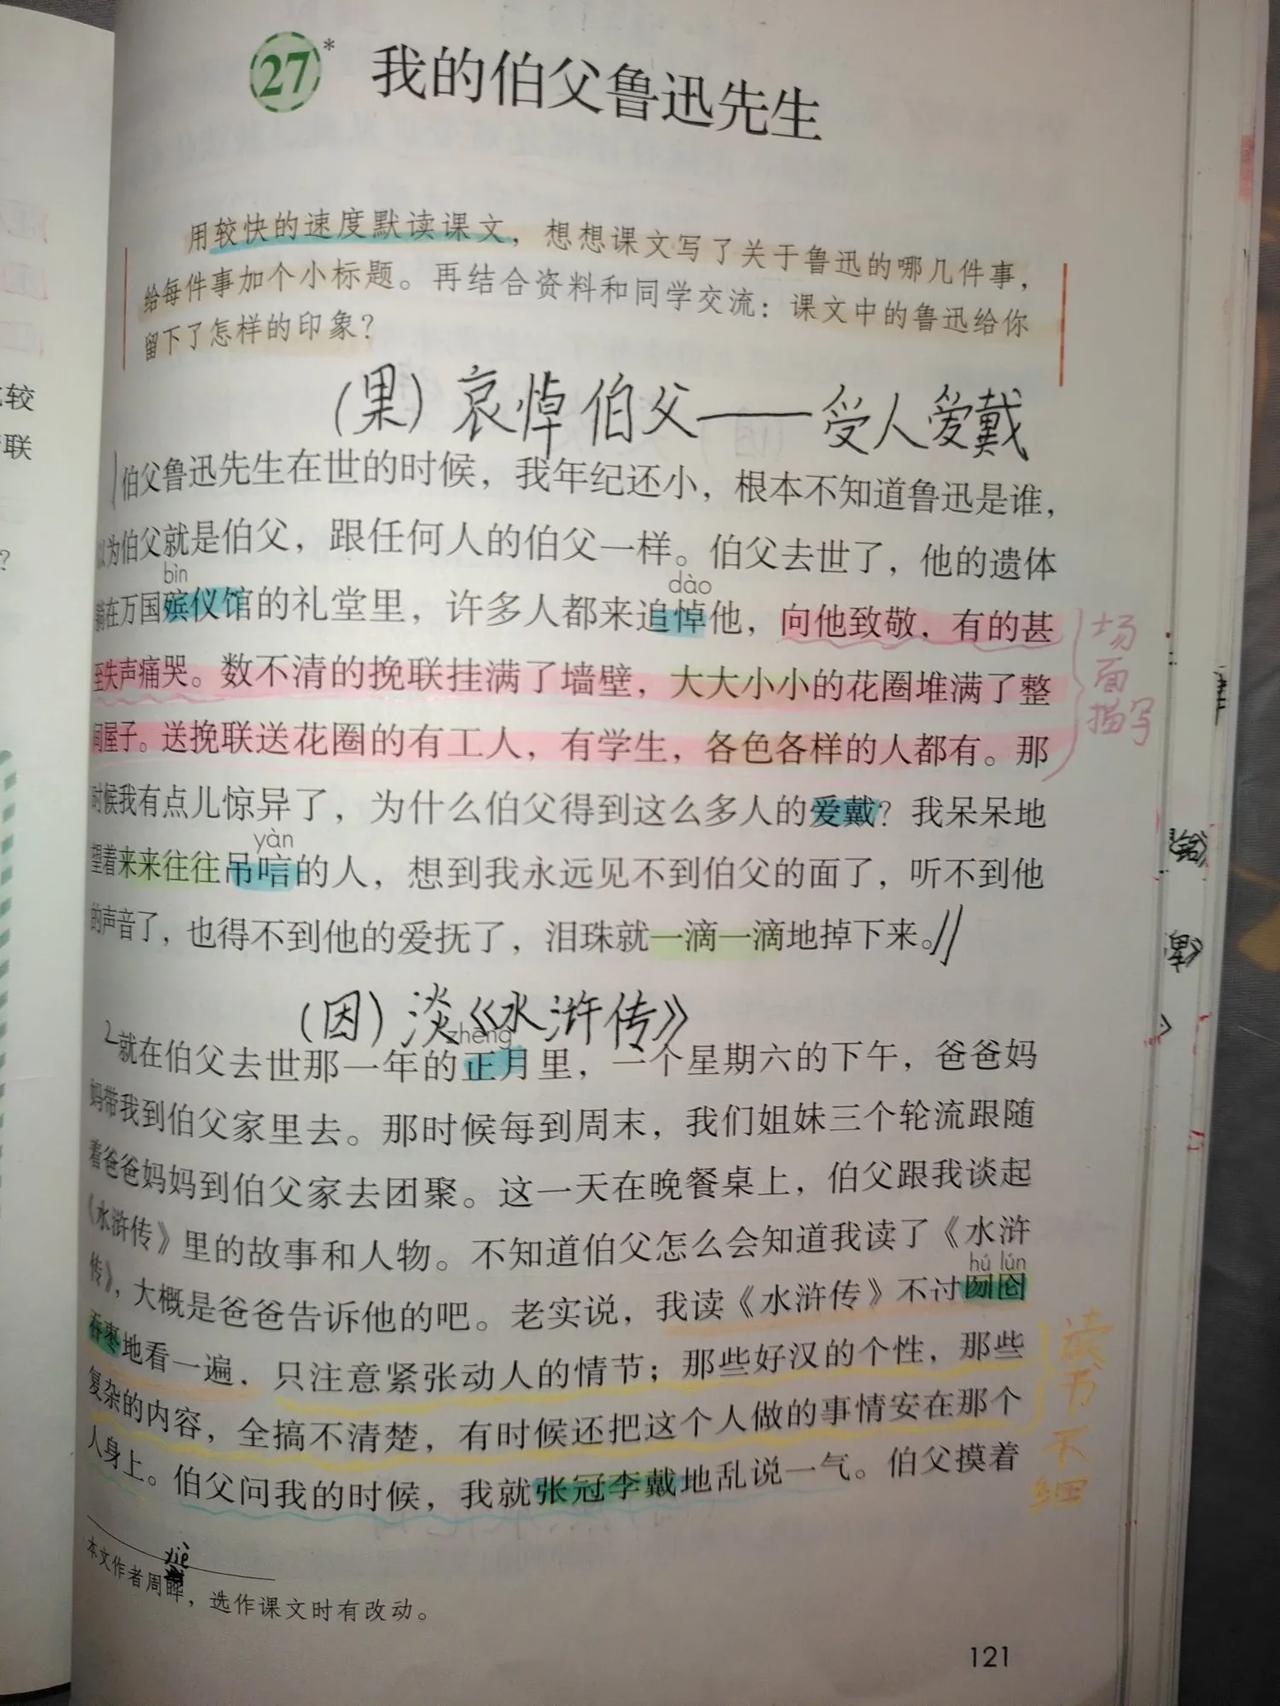 27* 我的伯父鲁迅先生
用较快的速度默读课文，想想课文写了关于鲁迅的哪几件事，
给每件事加个小标题。再结合资料和同学交流：课文中的鲁迅给你
留下了怎样的印象？
（果）哀悼伯父——受人爱戴
伯父鲁迅先生在世的时候，我年纪还小，根本不知道鲁迅是谁，
以为伯父就是伯父，跟任何人的伯父一样。伯父去世了，他的遗体
bìn dào
躺在万国殡仪馆的礼堂里，许多人都来追悼他，向他致敬，有的甚
至失声痛哭。数不清的挽联挂满了墙壁，大大小小的花圈堆满了整
间屋子。送挽联送花圈的有工人，有学生，各色各样的人都有。那
场面描写
时候我有点儿惊异了，为什么伯父得到这么多人的爱戴？我呆呆地
yàn
望着来来往往吊唁的人，想到我永远见不到伯父的面了，听不到他
的声音了，也得不到他的爱抚了，泪珠就一滴一滴地掉下来。//
（因）淡《水浒传》
zhēng
2就在伯父去世那一年的正月里，一个星期六的下午，爸爸妈
妈带我到伯父家里去。那时候每到周末，我们姐妹三个轮流跟随
着爸爸妈妈到伯父家去团聚。这一天在晚餐桌上，伯父跟我谈起
《水浒传》里的故事和人物。不知道伯父怎么会知道我读了《水浒
hú lún
传》，大概是爸爸告诉他的吧。老实说，我读《水浒传》不过囫囵
吞枣地看一遍，只注意紧张动人的情节；那些好汉的个性，那些
复杂的内容，全搞不清楚，有时候还把这个人做的事情安在那个
人身上。伯父问我的时候，我就张冠李戴地乱说一气。伯父摸着
读书不细
yiè
本文作者周晔，选作课文时有改动。
121
较
联
？